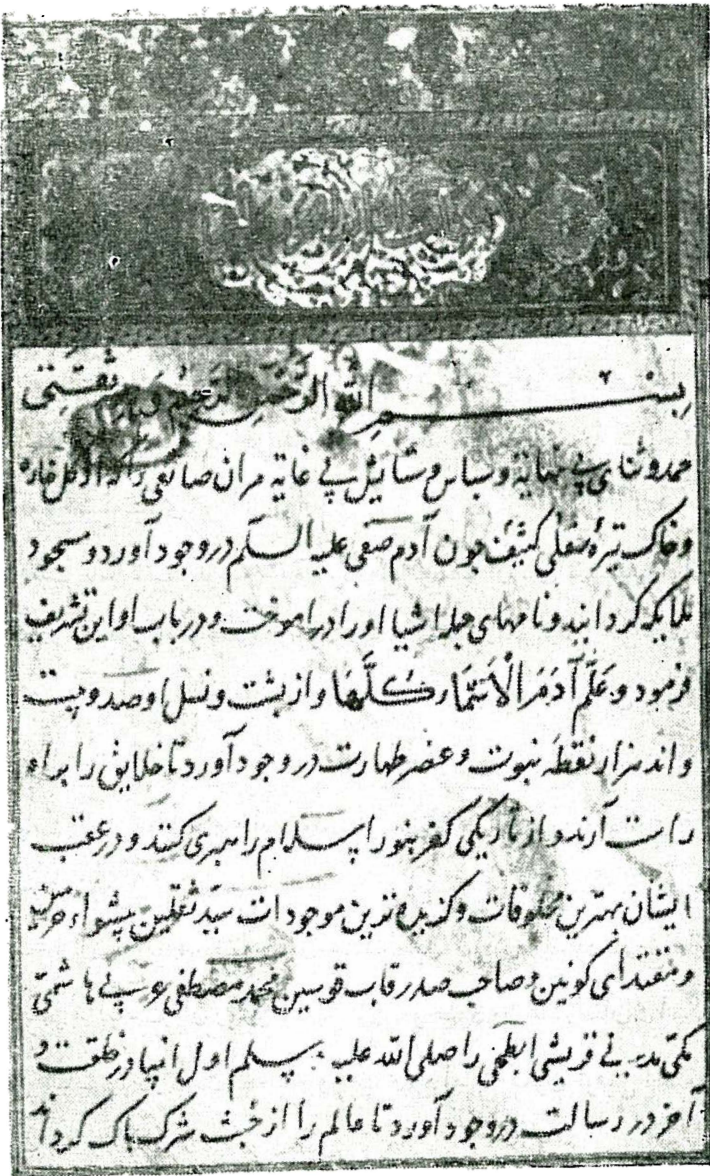 بسم الله الرحمن الرحیم وبه ثقتی
حمد وثنای بی نهایة وسپاس وستایش بی غایة مران صانعی را که از کل
وخاک تیرهٔ سفلی کثیف چون آدم صفی علیه السلم در وجود آورد و مسجود
ملایکه کردانید ونامهای جمله اشیا اورا دراموخت ودر باب او این تشریف
فرمود وعلّم آدم الاسماء کلّها واز پشت ونسل او صد وبیست
واند هزار نقطه نبوت وعنصر طهارت در وجود آورد تا خلایق را براه
راست آرند واز تاریکی کفر بنور اسلام راهبری کنند ودر عقب
ایشان بهترین مخلوقات وکزیده ترین موجودات سید ثقلین پیشواء حرمین
ومقتدای کونین وصاحب صدر قاب قوسین محمد مصطفی عربی هاشمی
مکی مدنی قریشی ابطحی را صلی الله علیه وسلم اول انبیا در خلقت و
آخر در رسالت در وجود آورد تا عالم را از خبث شرک پاک کرداند